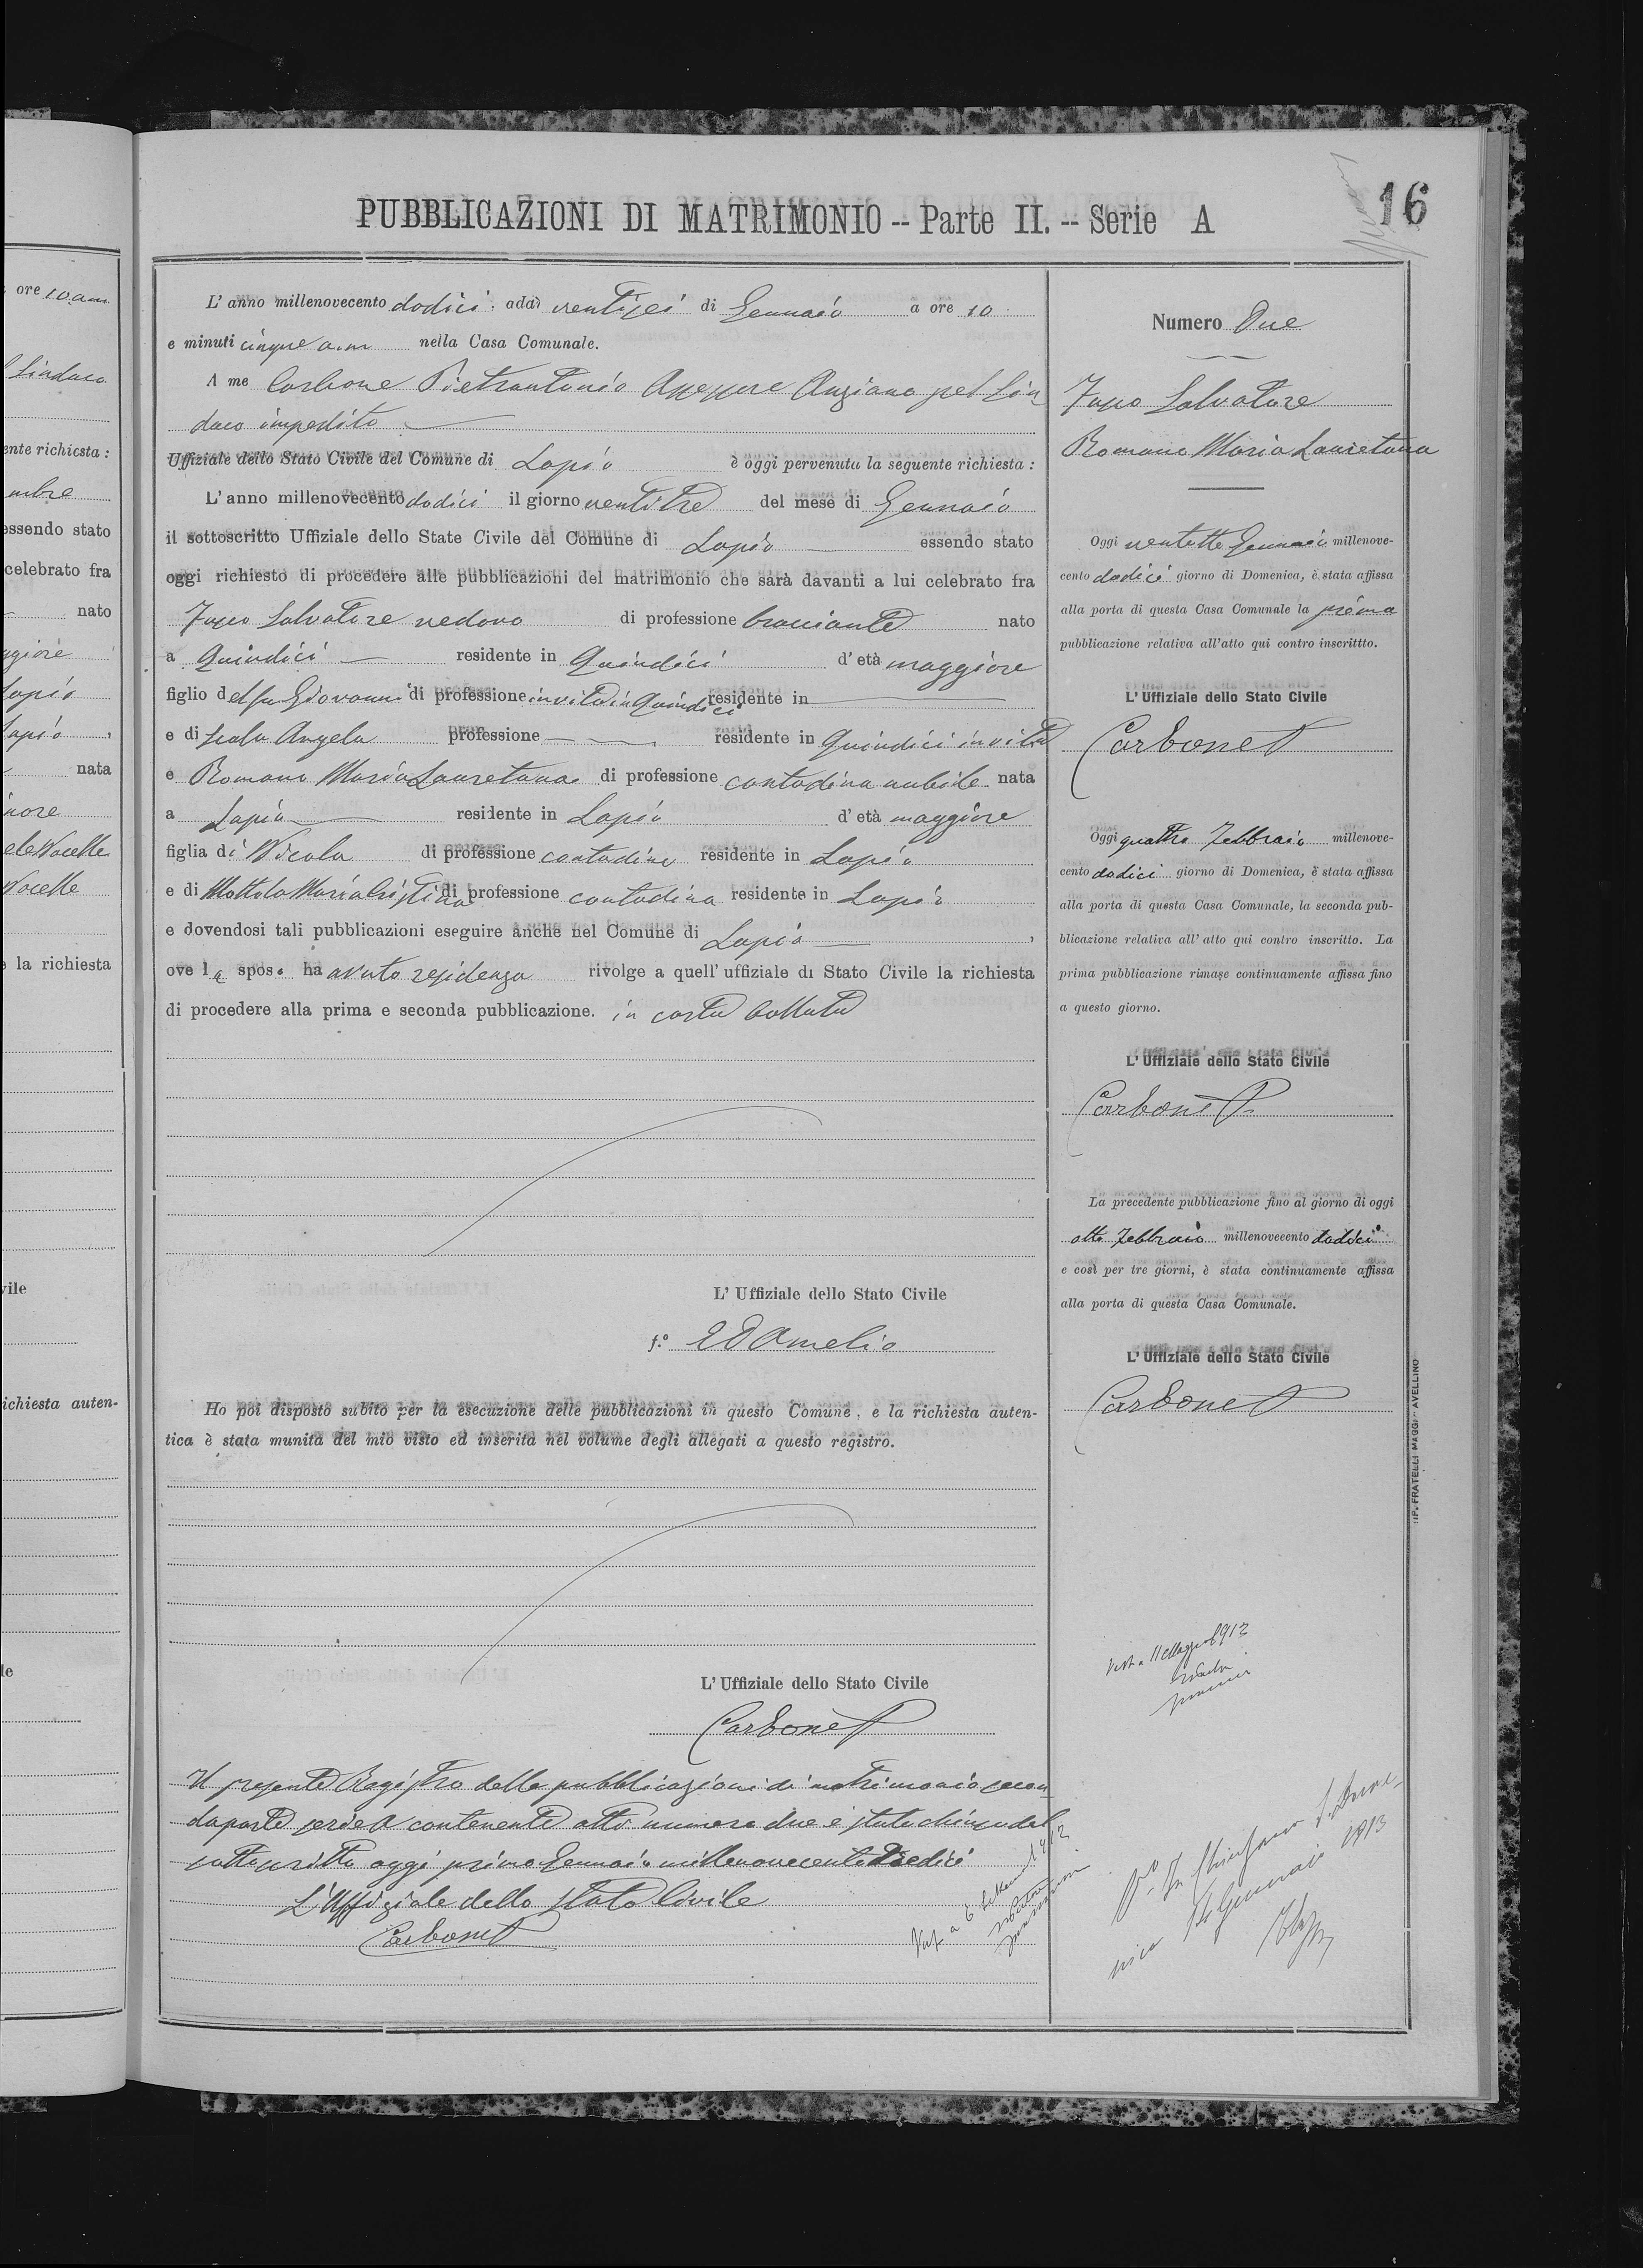 ore 10 a.m.
Sindaco
ente richiesta :
mbre
essendo stato
celebrato fra
nato
aggiore
Lapio
Lapio ,
nata
inore
Nocelle
Nocelle
la richiesta
vile
richiesta auten-
le
16
PUBBLICAZIONI DI MATRIMONIO -- Parte II. -- Serie A
L' anno millenovecento dodici, addì ventisei di Gennaio a ore 10
e minuti cinque a.m nella Casa Comunale.
A me Carbone Pietrantonio Assessore Anziano pel Sin
daco impedito
Uffiziale dello Stato Civile del Comune di Lapio è oggi pervenuta la seguente richiesta :
L' anno millenovecento dodici il giorno ventitre del mese di Gennaio
il sottoscritto Uffiziale dello State Civile del Comune di Lapio essendo stato
oggi richiesto di procedere alle pubblicazioni del matrimonio che sarà davanti a lui celebrato fra
Salvatore vedovo di professione bracciante nato
a Quindici residente in Quindici d' età maggiore
figlio del fu Giovanni di professione in vita in Quindici residente in
e di Scala Angela professione residente in Quindici in vita
e Romano Maria Lauretana di professione contadina nubile nata
a Lapio residente in Lapio d' età maggiore
figlia di Nicola di professione contadino residente in Lapio
e di Mottola Maria Cristina di professione contadina residente in Lapio
e dovendosi tali pubblicazioni eseguire anche nel Comune di Lapio ,
ove la sposa ha avuto residenza rivolge a quell' uffiziale di Stato Civile la richiesta
di procedere alla prima e seconda pubblicazione. in carta bollata
L' Uffiziale dello Stato Civile
f.º D'Amelio
Ho poi disposto subito per la esecuzione delle pubblicazioni in questo Comune, e la richiesta auten-
tica è stata munita del mio visto ed inserita nel volume degli allegati a questo registro.
L' Uffiziale dello Stato Civile
Carbone P
Il presente Registro delle pubblicazioni di matrimonio secon
da parte serie A contenente atti numero due è stato chiuso dal
sottoscritto oggi primo Gennaio millenovecento tredici
L'Uffiziale dello Stato Civile
Carbone P
Numero Due
Salvatore
Romano Maria Lauretana
Oggi ventotto Gennaio millenove-
cento dodici giorno di Domenica, è stata affissa
alla porta di questa Casa Comunale la prima
pubblicazione relativa all'atto qui contro inscrittto.
L' Uffiziale dello Stato Civile
Carbone P
Oggi quattro Febbraio millenove-
cento dodici giorno di Domenica, è stata affissa
alla porta di questa Casa Comunale, la seconda pub-
blicazione relativa all' atto qui contro inscritto. La
prima pubblicazione rimase continuamente affissa fino
a questo giorno.
L' Uffiziale dello Stato Civile
Carbone P.
La precedente pubblicazione fino al giorno di oggi
otto Febbraio millenovecento dodici
e così per tre giorni, è stata continuamente affissa
alla porta di questa Casa Comunale.
L' Uffiziale dello Stato Civile
Carbone P
TIP. FRATELLI MAGGI - AVELLINO
Visto 11 Maggio 1912
Gennaio 1913